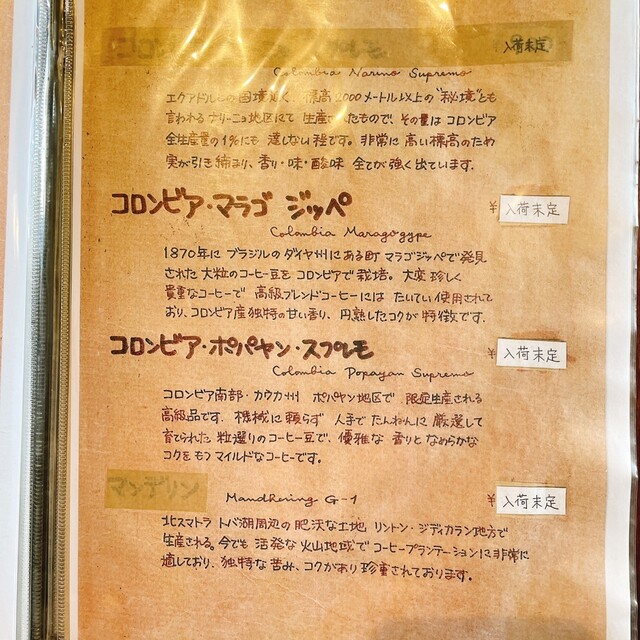 入荷未定
Colombia Narino Supremo
エクアドルとの国境近く、標高2000メートル以上の"秘境"とも
言われるナリーニョ地区にて生産したもので、その量はコロンビア
全生産量の1%にも達しない程です。非常に高い標高のため
実が引き締まり、香り・味・酸味全てが強く出ています.
コロンビア・マラゴジッペ ¥入荷未定
Colombia Maragogype
1870年にブラジルのダイヤ州にある町マラゴジッペで発見
された大粒のコーヒー豆をコロンビアで栽培。大変珍しく
貴重なコーヒーで高級ブレンドコーヒーにはたいてい使用されて
おり、コロンビア産独特の甘い香り、円熟したコクが特徴です.
コロンビア・ポパヤン・スプレモ ¥入荷未定
Colombia Popayan Supremo
コロンビア南部・カウカ州 ポパヤン地区で限定生産される
高級品です. 機械に頼らず人手でたんねんに厳選して
育てられた粒選りのコーヒー豆で、優雅な香りとなめらかな
コクをもつマイルドなコーヒーです。
マンデリン Mandhering G-1 ¥入荷未定
北スマトラ トバ湖周辺の肥沃な土地 リントン・ジディカラン地方で
生産される。今でも活発な火山地域でコーヒープランテーションに非常に
適しており、独特な苦み、コクがあり珍重されております。